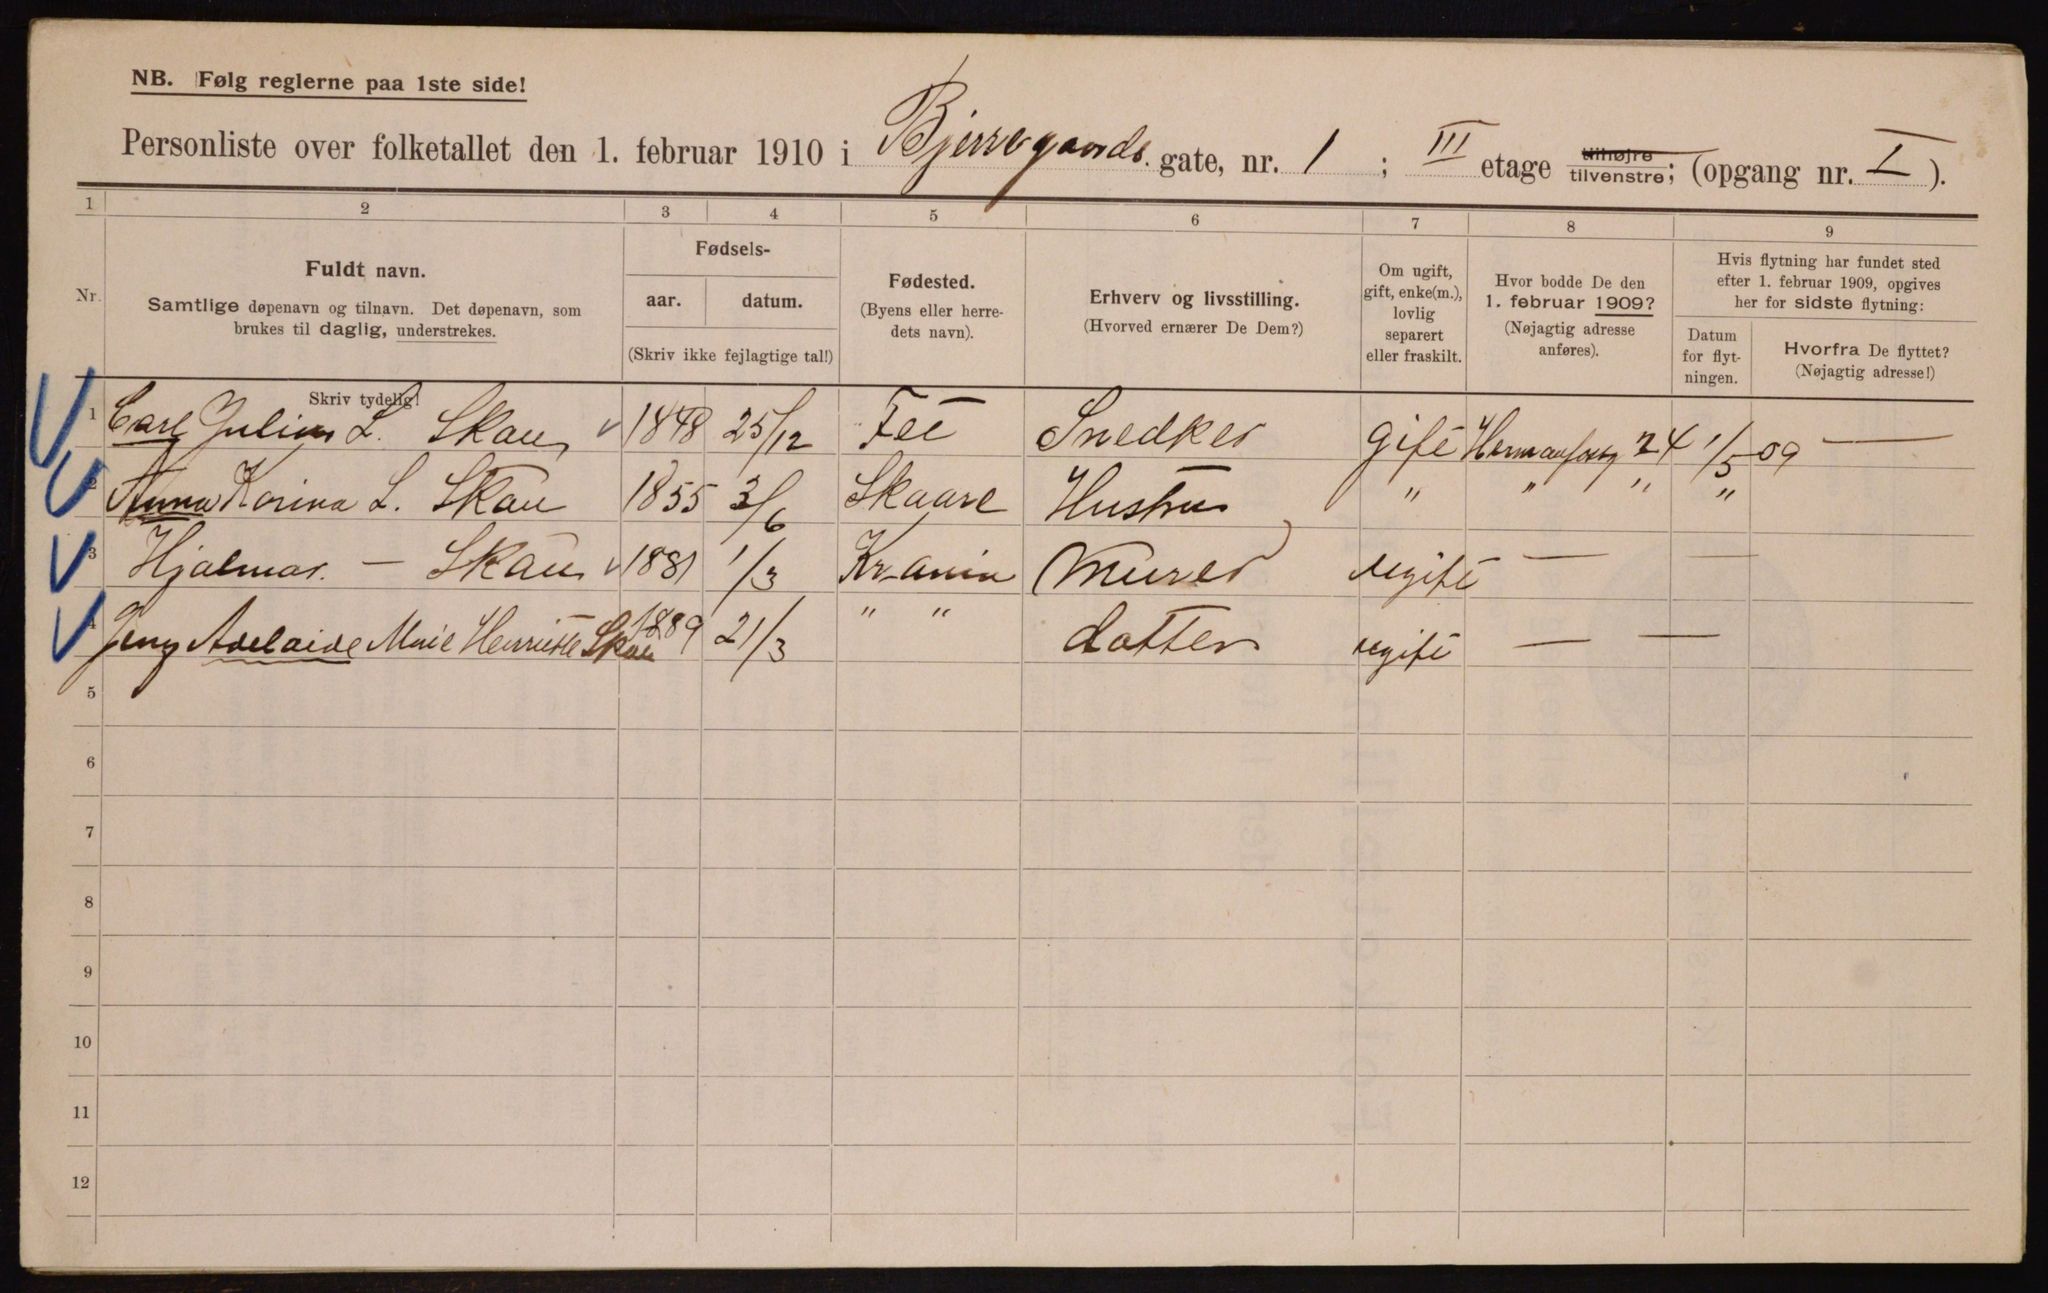 NB. Følg reglerne paa 1ste side!
Personliste over folketallet den 1. februar 1910 i Bjerregaards. gate, nr. 1 ; III etage tilhøjre tilvenstre; (opgang nr. I ).
1 2 3 4 5 6 7 8 9
Nr. Fuldt navn. Samtlige døpenavn og tilnavn. Det døpenavn, som brukes til daglig, understrekes.
Fødsels- aar. datum. (Skriv ikke fejlagtige tal!)
Fødested. (Byens eller herredets navn).
Erhverv og livsstilling. (Hvorved ernærer De Dem?)
Om ugift, gift, enke(m.), lovlig separert eller fraskilt.
Hvor bodde De den 1. februar 1909? (Nøjagtig adresse anføres).
Hvis flytning har fundet sted efter 1. februar 1909, opgives her for sidste flytning:
Datum for flytningen. Hvorfra De flyttet? (Nøjagtig adresse!)
Skriv tydelig!
1 Carl Julius L. Skau 1848 25/12 Fet Snedker gift 24 1/5 09 —
2 Anna Karina L. Skau 1855 3/6 Skaare Hustru " " " "
3 Hjalmar. — Skau 1881 1/3 Kr.ania Murer ugift — —
4 Jeny Adelaide Marie Henriette Skau 1889 21/3 " " datter ugift — —
5
6
7
8
9
10
11
12